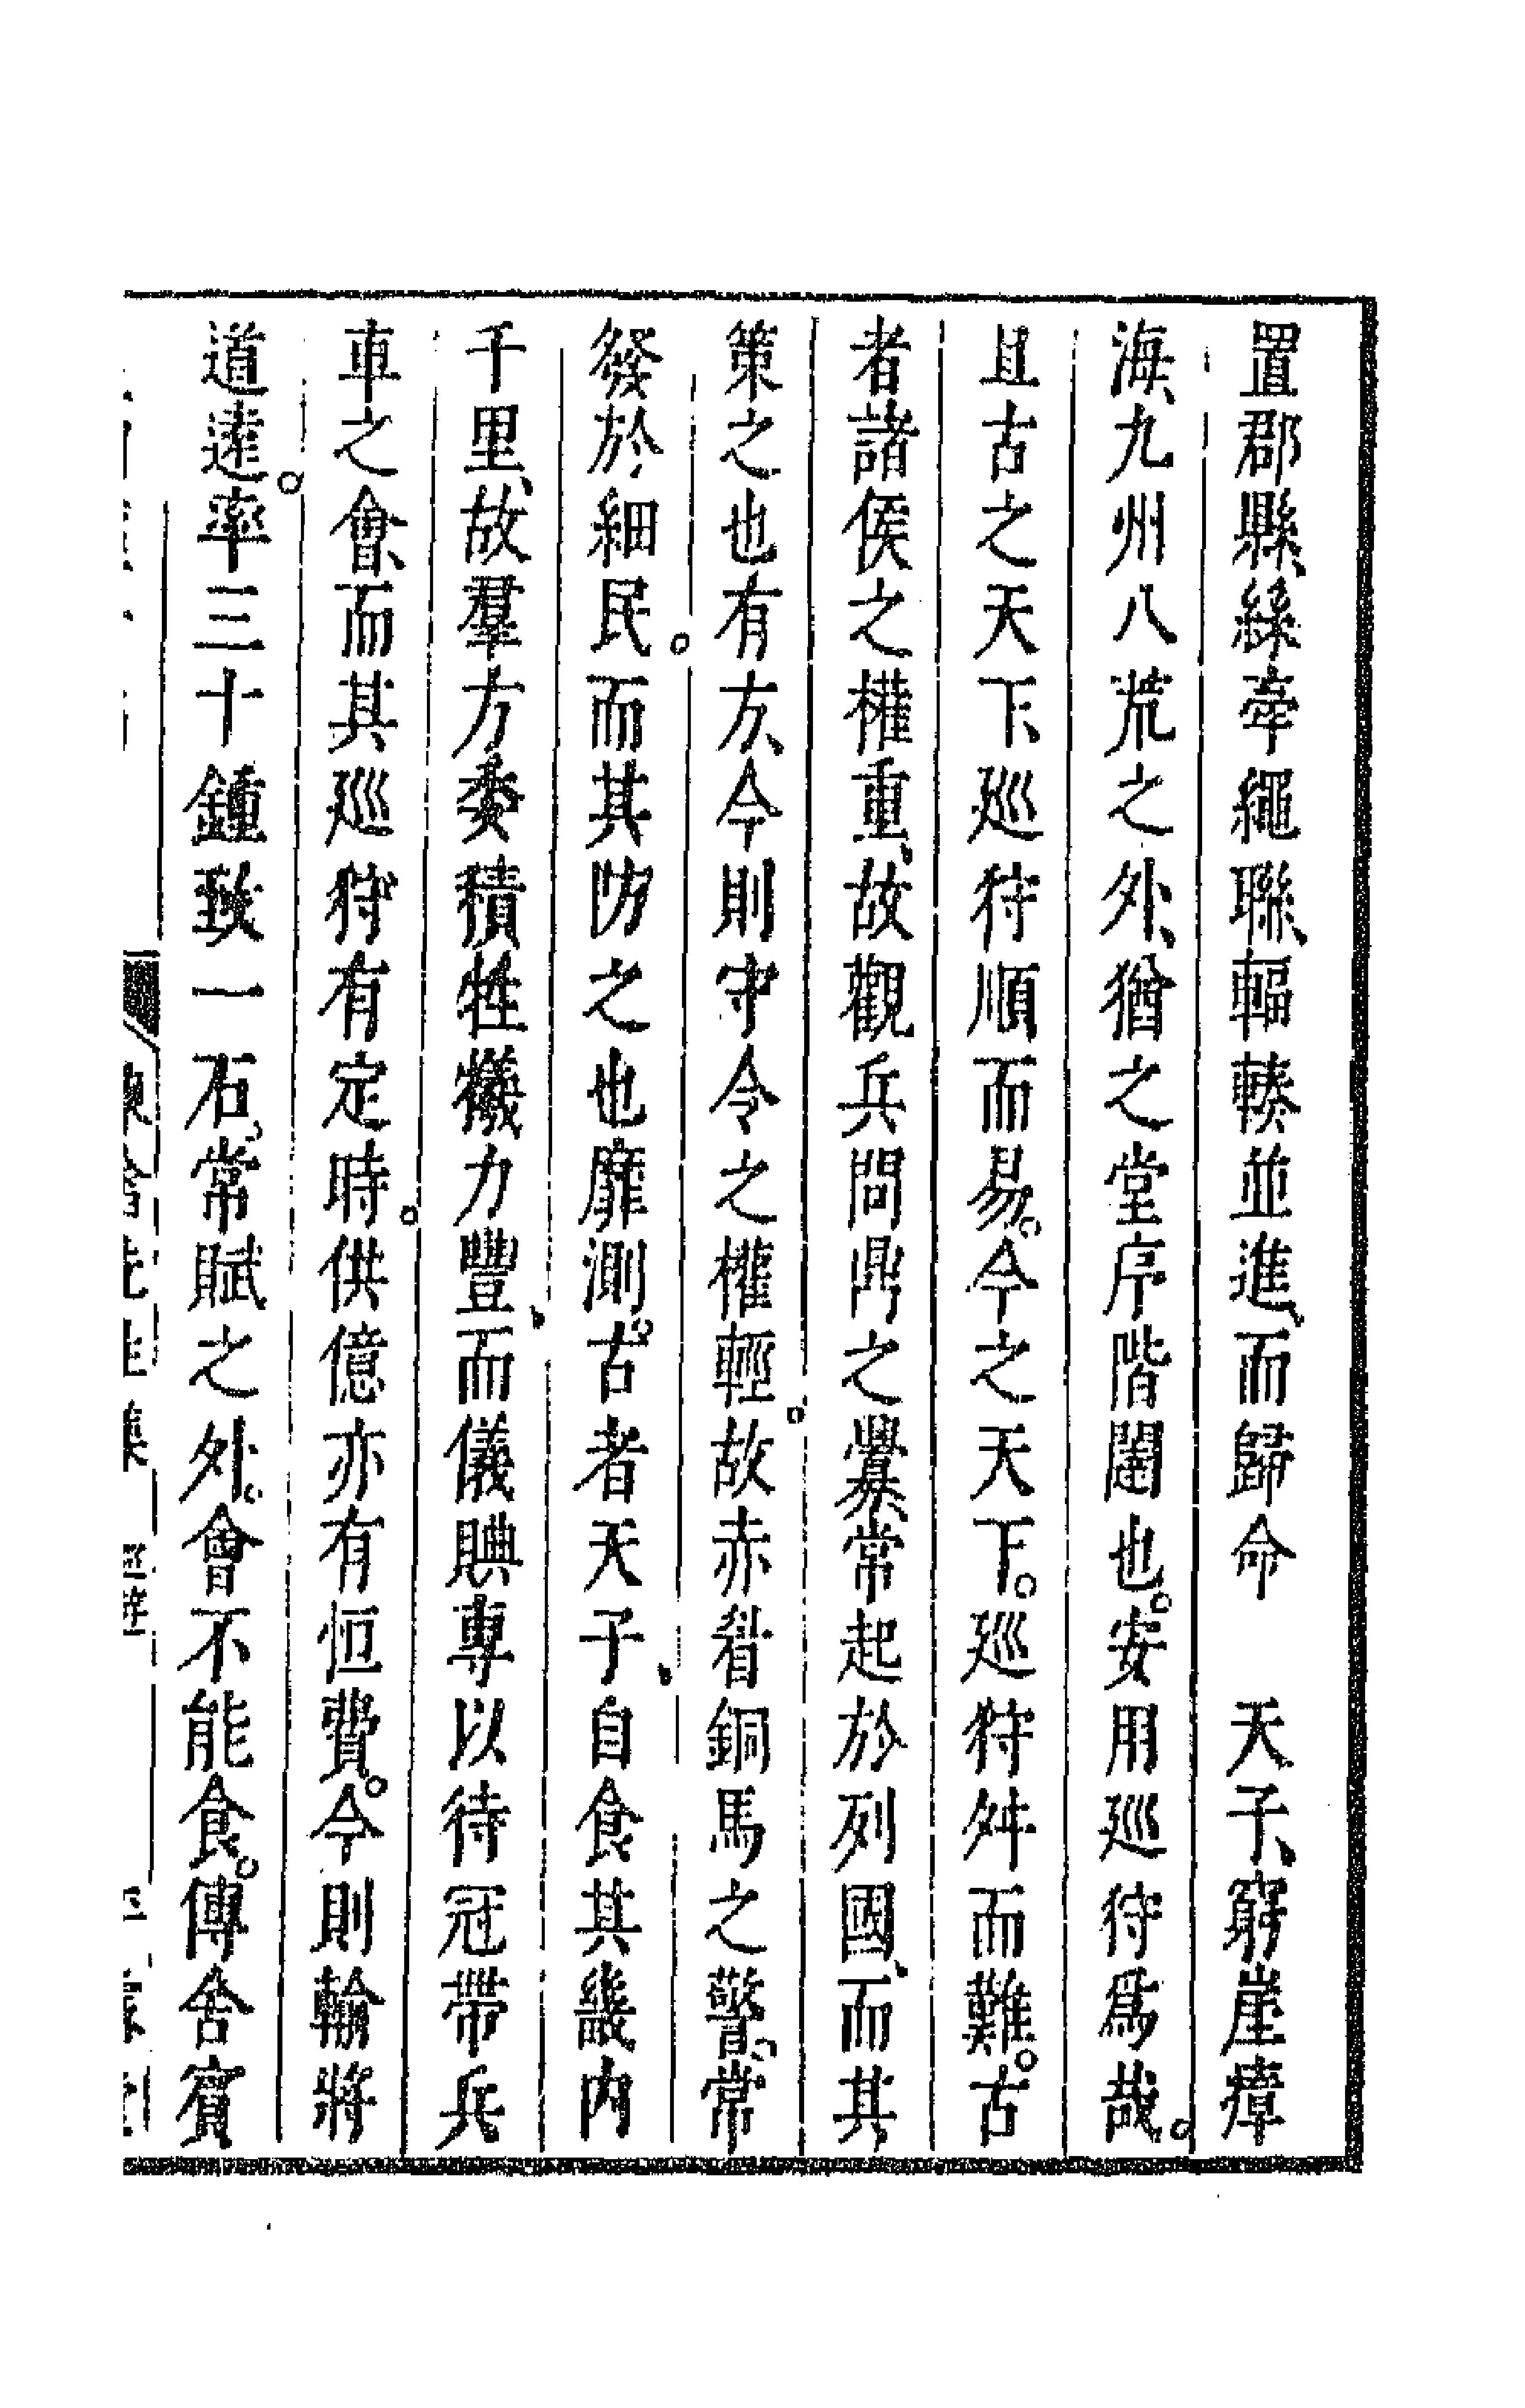 置郡縣、絲牽繩聯、輻輳並進、而歸命　天子、窮崖瘴
海、九州八荒之外、猶之堂序階闥也。安用廵狩爲哉。
且古之天下、廵狩順而易。今之天下。廵狩舛而難。古
者諸侯之權重、故觀兵問鼎之釁、常起於列國、而其
策之也有方、今則守令之權輕。故赤眉銅馬之警、常
發於細民。而其防之也靡測。古者天子、自食其畿内
千里、故羣方委積牲犧力豐、而儀腆專以待冠帶兵
車之會、而其廵狩有定時。供億亦有恒費。今則輸將
道達。率三十鍾致一石、常賦之外。會不能食。傳舍賓